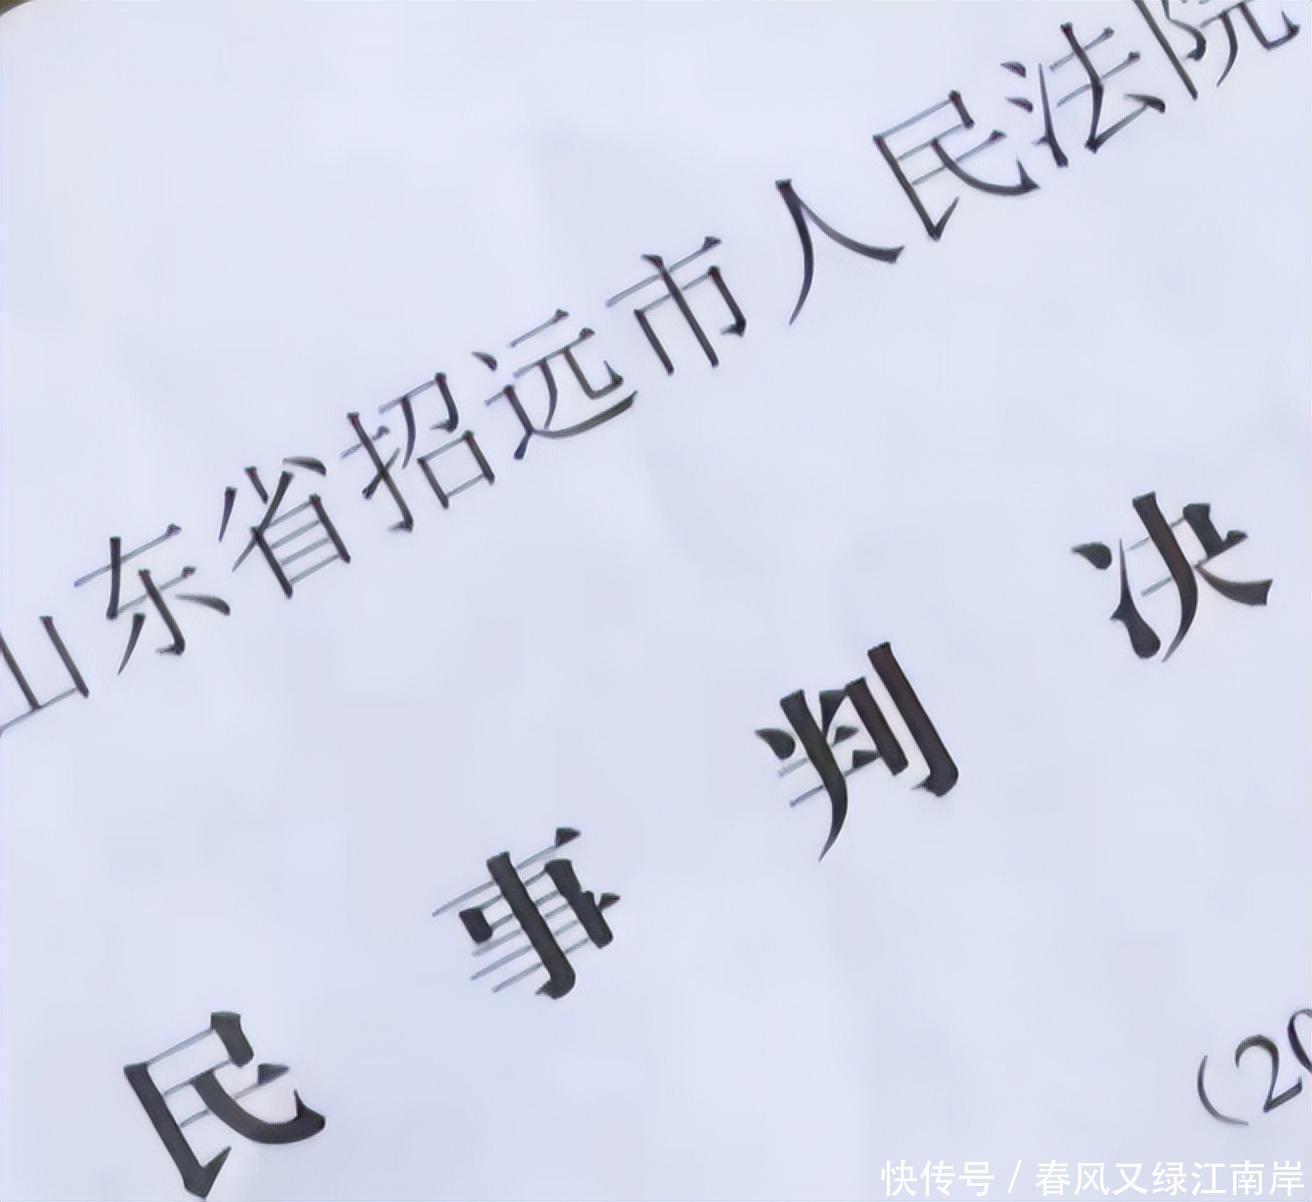 山东省招远市人民法院
民事判决
(20
快传号 / 春风又绿江南岸